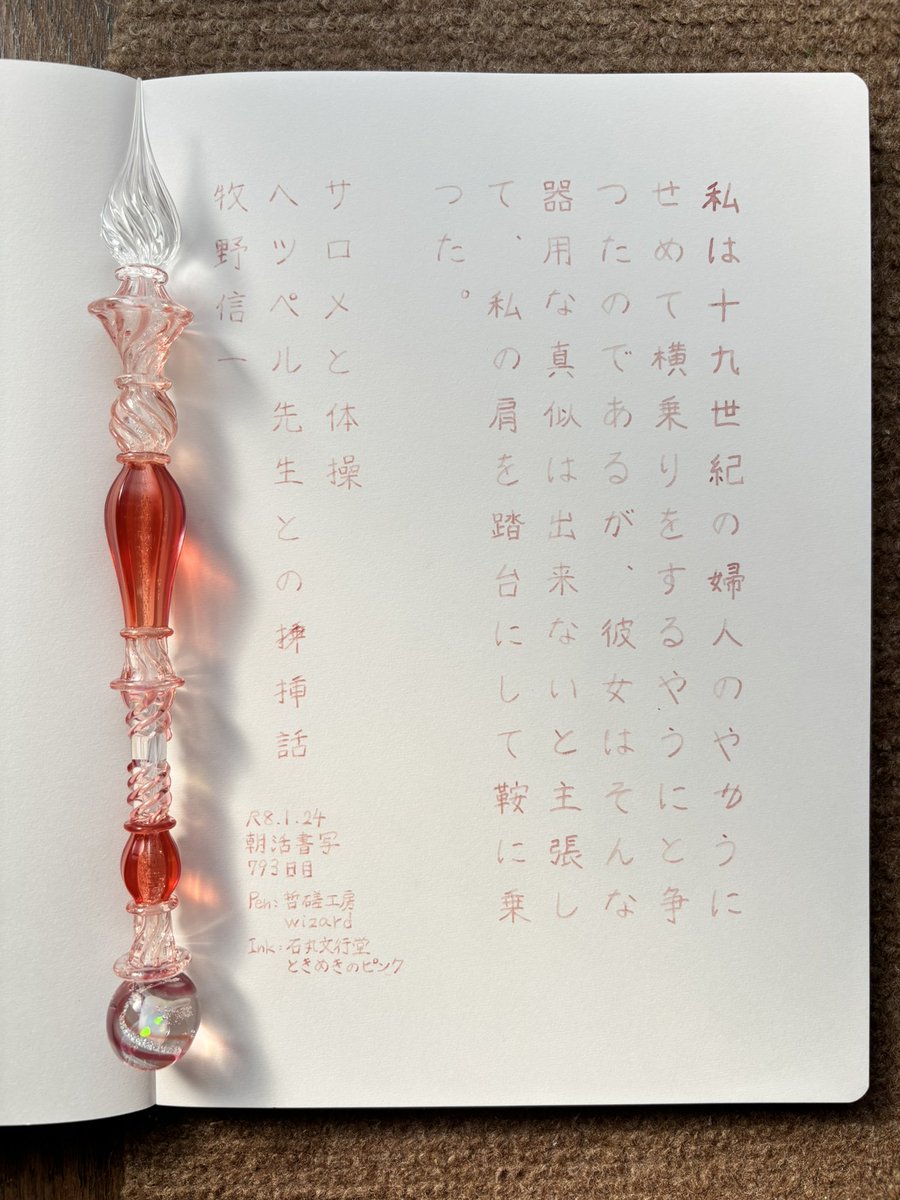 私は十九世紀の婦人のやカうに
せめて横乗りをするやうにと争
つたのであるが、彼女はそんな
器用な真似は出来ないと主張し
て、私の肩を踏台にして鞍に乗
つた。
サロメと体操
ヘツペル先生との挿挿話
牧野信一
R8.1.24
朝活書写
793日目
Pen:哲磋工房
wizard
Ink:石丸文行堂
ときめきのピンク